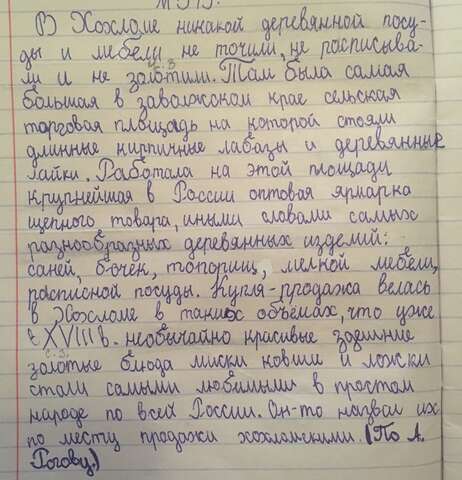 В Хохломе никакой деревянной посу-
ды и мебели не точили, не расписыва-
ли и не золотили. Там была самая
большая в заволжском крае сельская
торговая площадь на которой стояли
длинные кирпичные лабазы и деревянные
лайки. Работала на этой площади
крупнейшая в России оптовая ярмарка
щепного товара, иными словами самых
разнообразных деревянных изделий:
саней, бочек, топорищ, мелкой мебели,
расписной посуды. Купля-продажа велась
в Хохломе в таких объёмах, что уже
в XVIII в. необычайно красивые здешние
золотые блюда миски ковши и ложки
стали самыми любимыми в простом
народе по всей России. Он-то назвал их
по месту продажи хохломскими. (По А.
Рогову.)